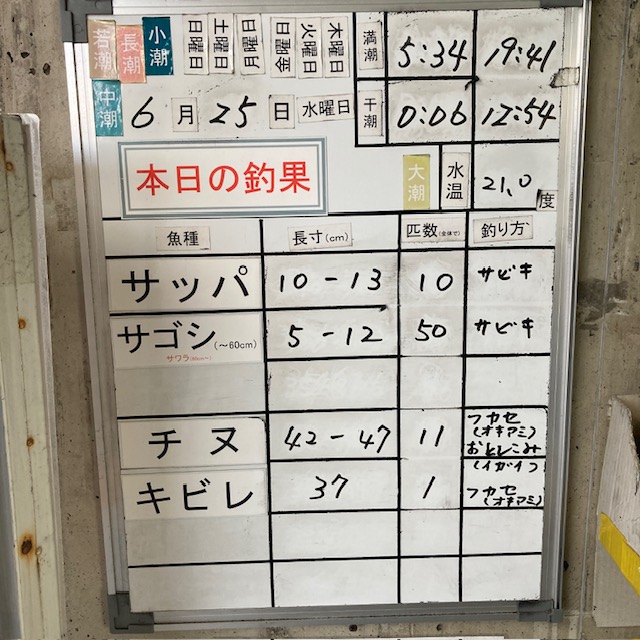 若潮 長潮 小潮 日曜日 土曜日 月曜日 金曜日 火曜日 木曜日 満潮 5:34 19:41
中潮 6月25日 水曜日 干潮 0:06 12:54
本日の釣果 大潮 水温 21.0度
魚種 長寸(cm) 匹数(全体で) 釣り方
サッパ 10-13 10 サビキ
サゴシ(~60cm) 5-12 50 サビキ
サワラ
チヌ 42-47 11 フカセ
(オキアミ)
おとしこみ
(イガイ)
キビレ 37 1 フカセ
(オキアミ)